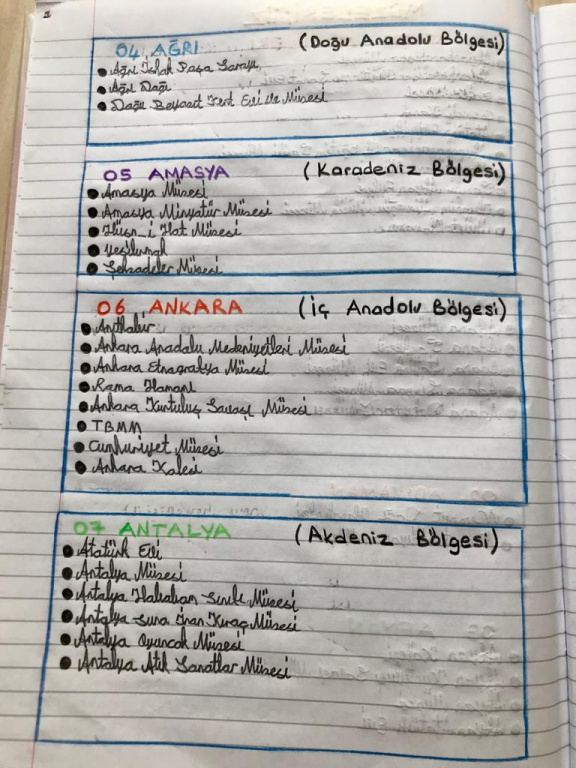 2
04 AĞRI (Doğu Anadolu Bölgesi)
Ağrı İshak Paşa Sarayı
Ağrı Dağı
Doğu Beyazıt Kent Evi ve Müzesi
05 AMASYA (Karadeniz Bölgesi)
Amasya Müzesi
Amasya Minyatür Müzesi
Hüsn-i Hat Müzesi
Yeşilırmak
Şehzadeler Müzesi
06 ANKARA (İç Anadolu Bölgesi)
Anıtkabir
Ankara Anadolu Medeniyetleri Müzesi
Ankara Etnografya Müzesi
Roma Hamamı
Ankara Kurtuluş Savaşı Müzesi
TBMM
Cumhuriyet Müzesi
Ankara Kalesi
07 ANTALYA (Akdeniz Bölgesi)
Atatürk Evi
Antalya Müzesi
Antalya Müzesi
Antalya Suna İnan Kıraç Müzesi
Antalya Oyuncak Müzesi
Antalya Sanatlar Müzesi